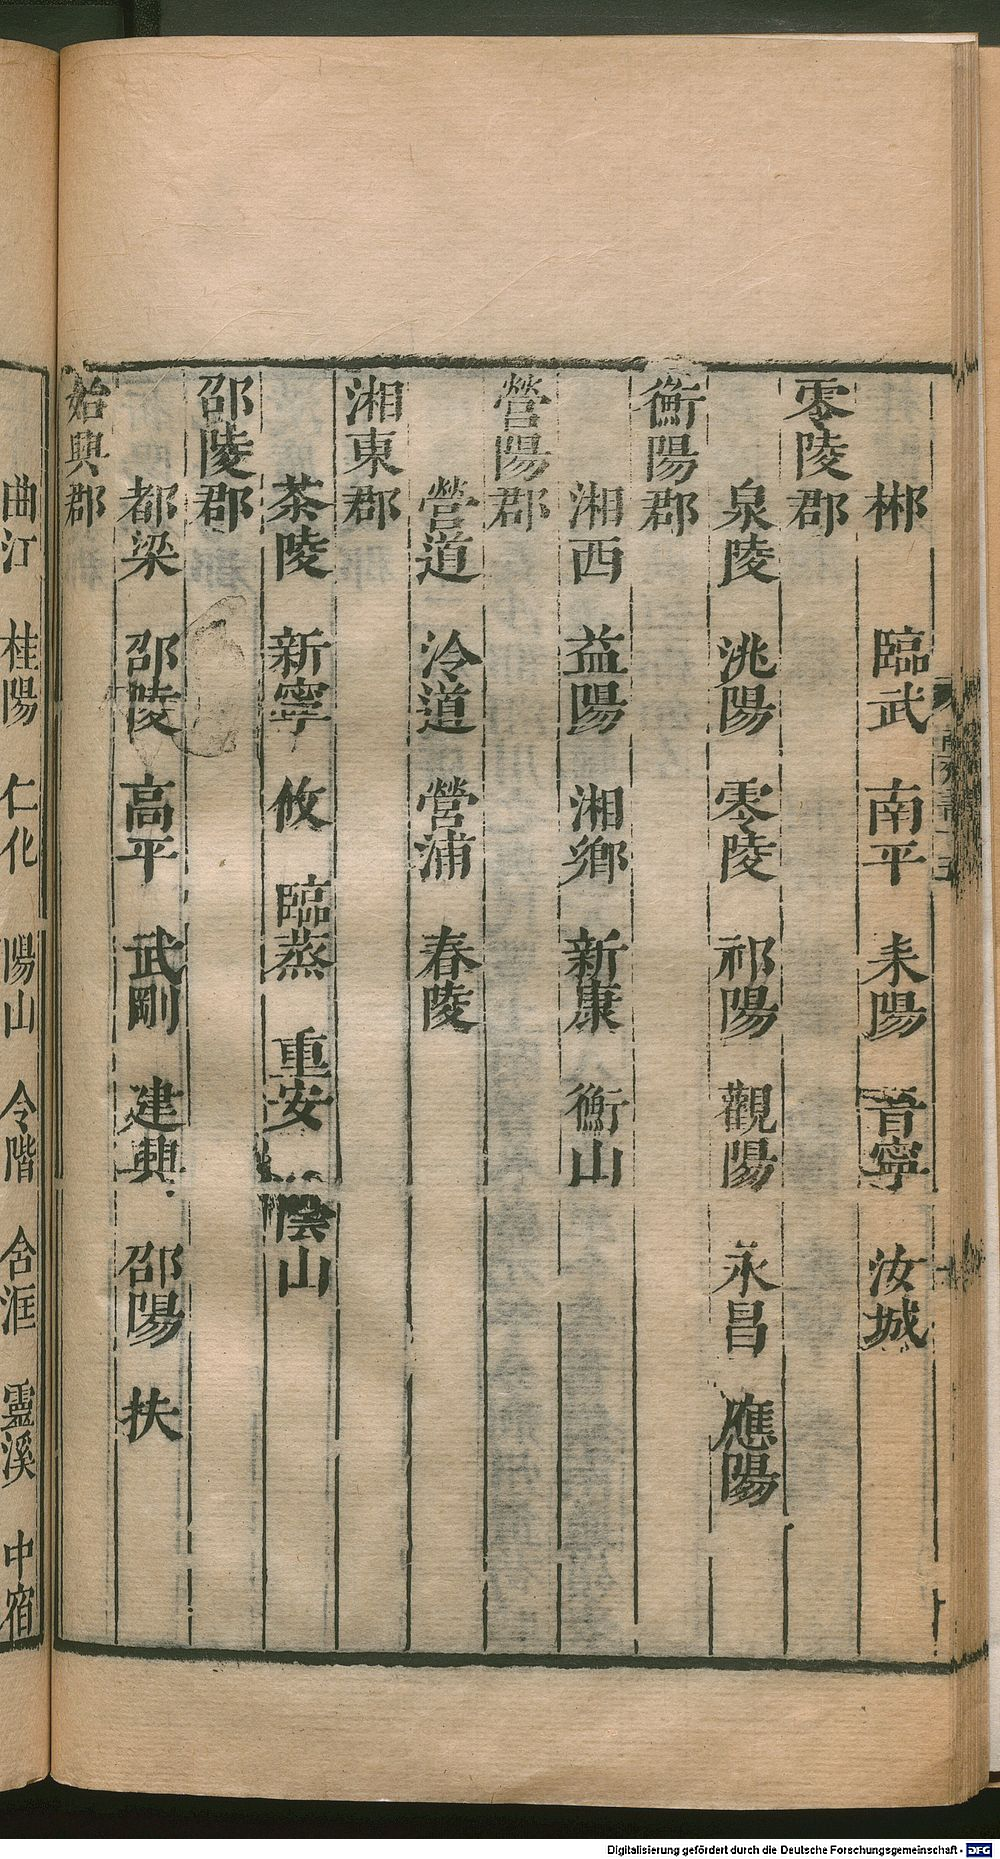 郴 臨武 南平 耒陽 晉寧 汝城
零陵郡
泉陵 洮陽 零陵 祁陽 觀陽 永昌 應陽
衡陽郡
湘西 益陽 湘鄉 新康 衡山
營陽郡
營道 泠道 營浦 舂陵
湘東郡
茶陵 新寧 攸 臨蒸 重安 陰山
邵陵郡
都梁 邵陵 高平 武剛 建興 邵陽 扶
始興郡
曲江 桂陽 仁化 陽山 令階 含洭 靈溪 中宿
Digitalisierung gefördert durch die Deutsche Forschungsgemeinschaft - DFG